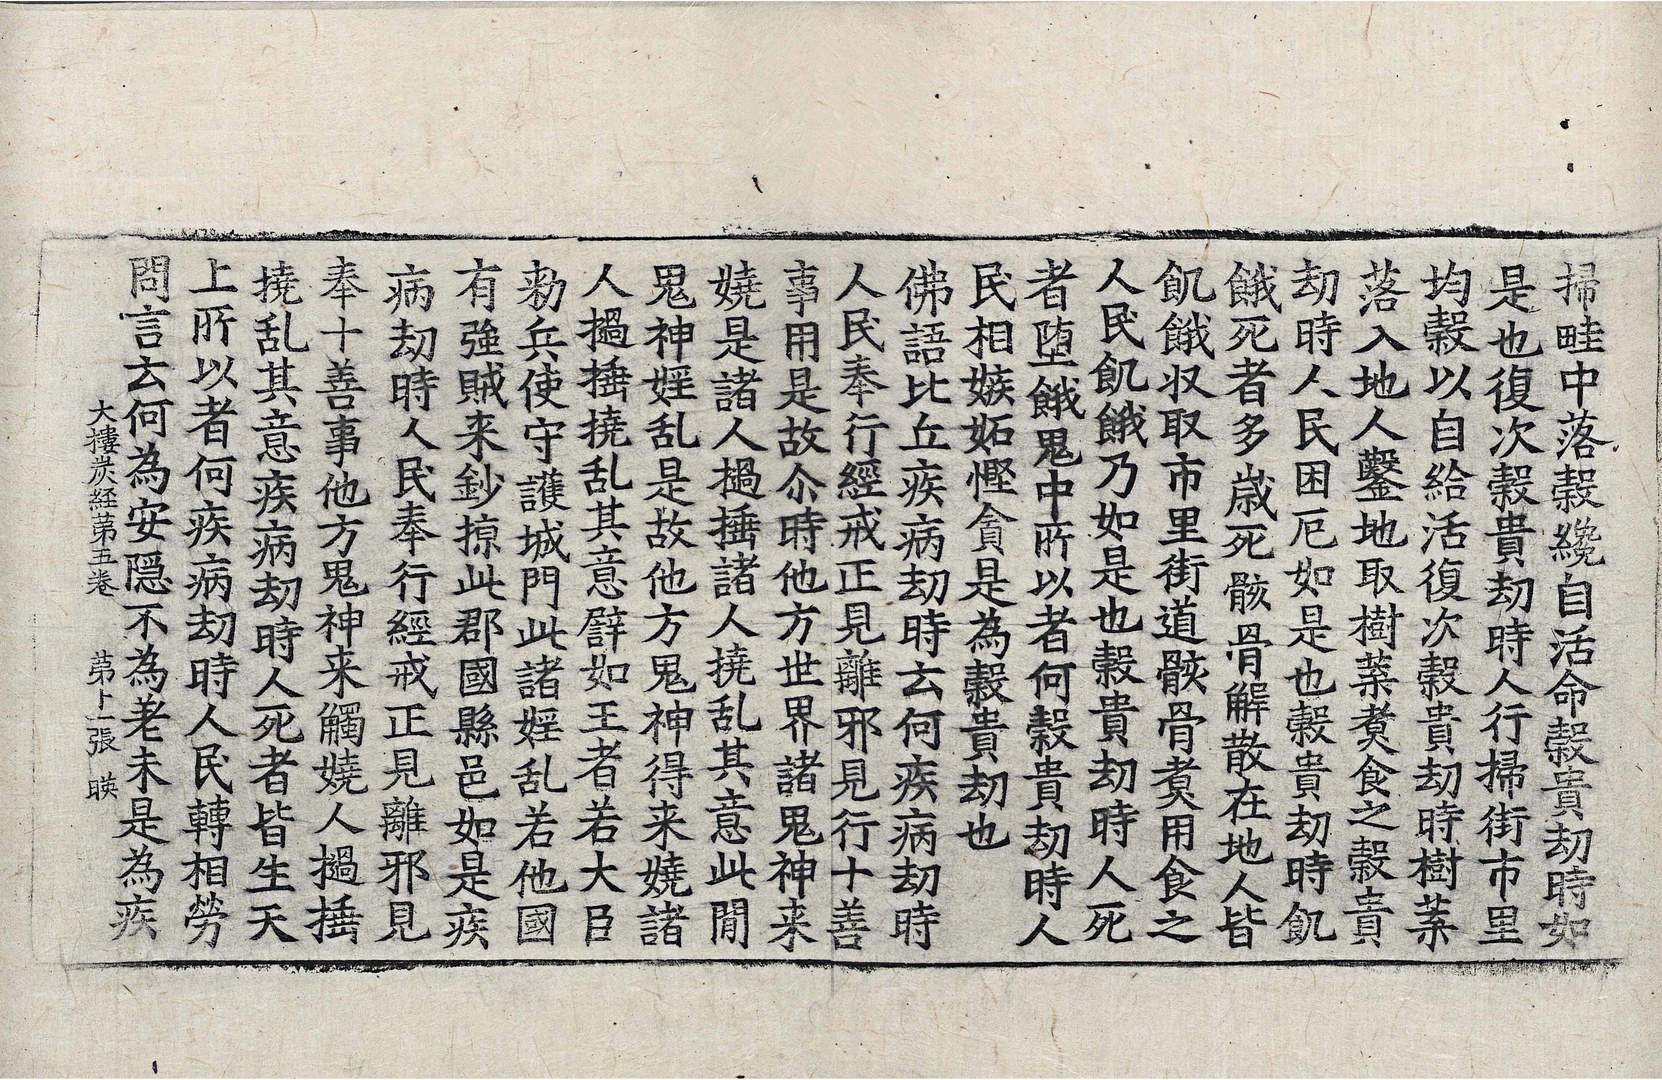 掃畦中落穀纔自活命穀貴劫時如
是也復次穀貴劫時人行掃街市里
均穀以自給活復次穀貴劫時樹葉
落入地人鑿地取樹葉煑食之穀貴
劫時人民困厄如是也穀貴劫時飢
餓死者多歲死骸骨解散在地人皆
飢餓収取市里街道骸骨煑用食之
人民飢餓乃如是也穀貴劫時人死
者墮餓鬼中所以者何穀貴劫時人
民相嫉妬慳貪是為穀貴劫也
佛語比丘疾病劫時云何疾病劫時
人民奉行經戒正見離邪見行十善
事用是故尒時他方世界諸鬼神来
嬈是諸人撾捶諸人撓乱其意此閒
鬼神婬乱是故他方鬼神得来嬈諸
人撾捶撓乱其意譬如王者若大臣
勑兵使守護城門此諸婬乱若他國
有強賊来鈔掠此郡國縣邑如是疾
病劫時人民奉行經戒正見離邪見
奉十善事他方鬼神来觸嬈人撾捶
撓乱其意疾病劫時人死者皆生天
上所以者何疾病劫時人民轉相勞
問言云何為安隱不為老未是為疾
大樓炭経苐五卷 苐十一張 暎